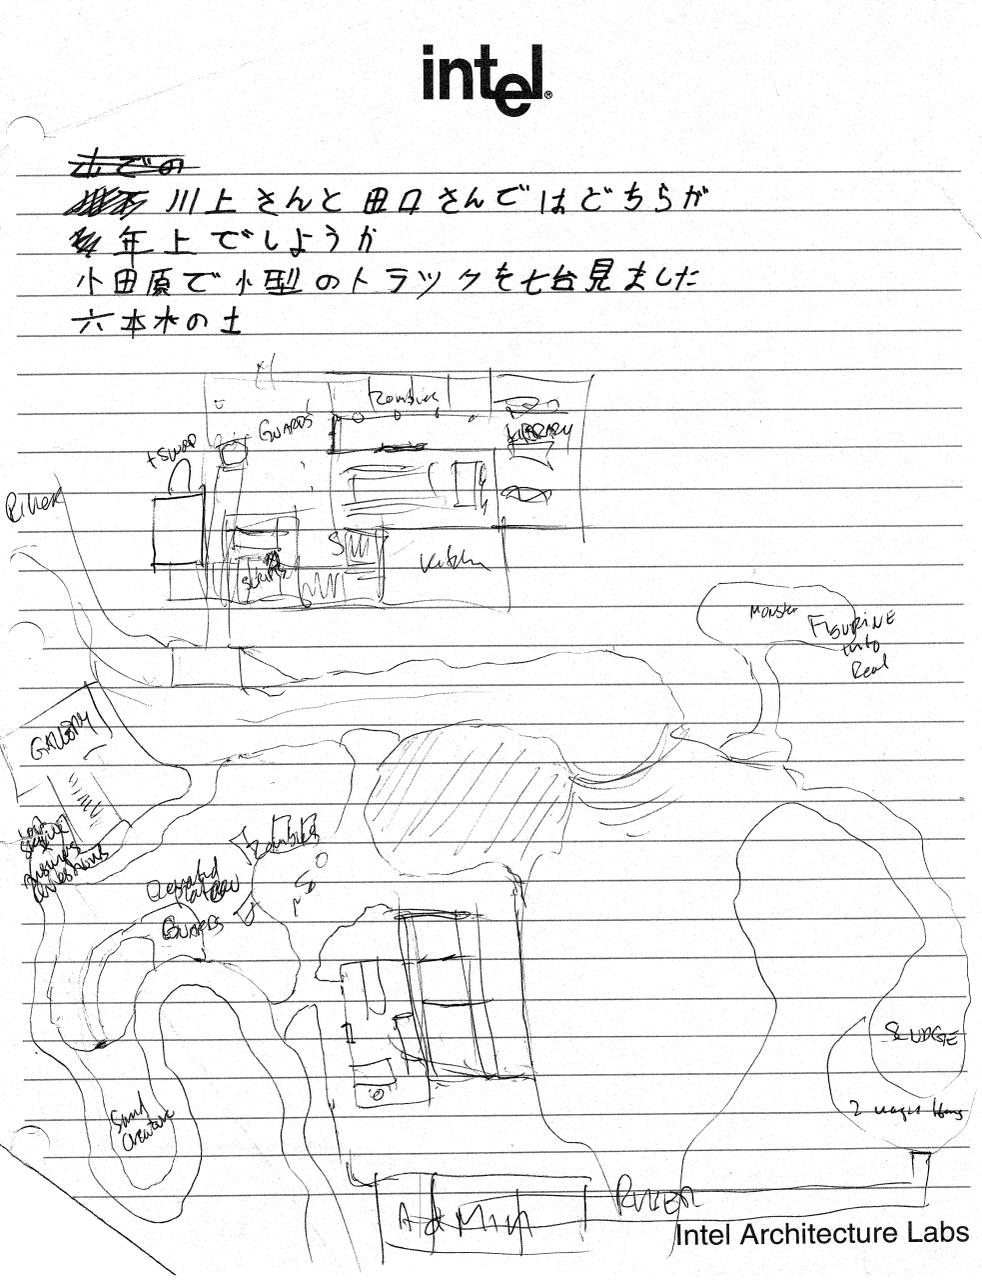 intel®
川上さんと田口さんではどちらが
年上でしようか
小田原で小型のトラックを七台見ました
六本木の土
Zombies
GUARDS
LIBRARY
+ SWORD
River
Kitchen
Monster
FIGURINE
into
Real
GALLERY
Zombies
Elevated
GUARDS
SLUDGE
Sand
Creature
2 mages
RULER
Admin
Intel Architecture Labs